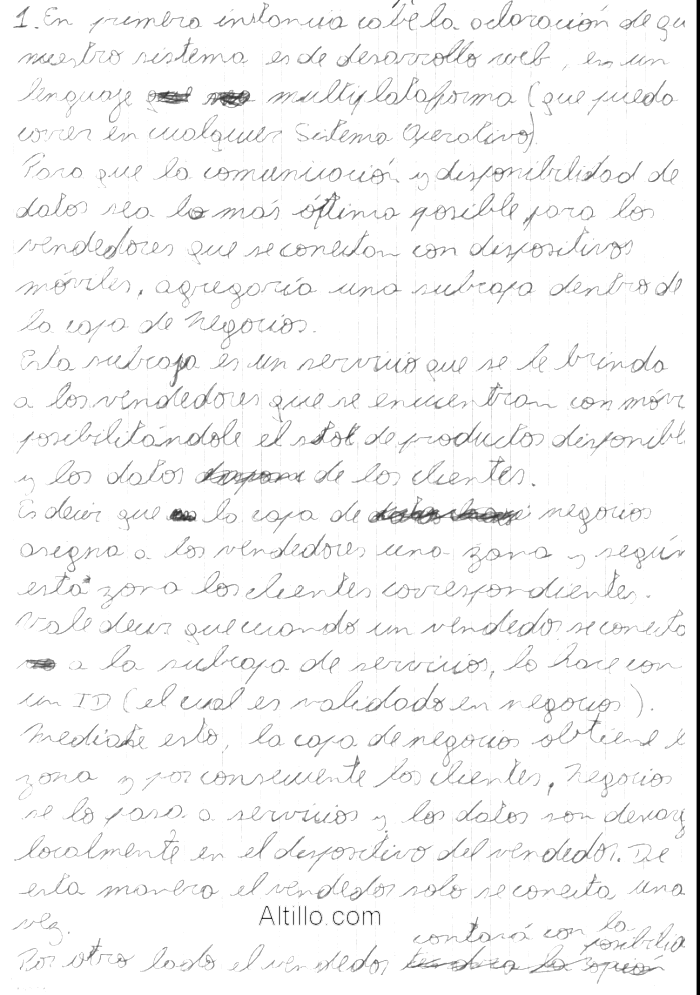 1. En primera instancia cabe la aclaración de qu
nuestro sistema es de desarrollo web, en un
lenguaje multiplataforma (que pueda
correr en cualquier Sistema Operativo)
Para que la comunicación y disponibilidad de
datos sea lo más óptima posible para los
vendedores que se conectan con dispositivos
móviles, agregaría una subcapa dentro de
la capa de Negocios.
Esta subcapa es un servicio que se le brinda
a los vendedores que se encuentran con móvi
posibilitándole el stok de productos disponibl
y los datos de los clientes.
Es decir que la capa de negocios
asigna a los vendedores una zona y según
esta zona los clientes correspondientes.
Vale decir que cuando un vendedor se conecta
a la subcapa de servicios, lo hace con
un ID (el cual es validado en negocios).
Mediante esto, la capa de negocios obtiene l
zona y por consecuente los clientes, Negocios
se lo pasa a servicios y los datos son descarg
localmente en el dispositivo del vendedor. De
esta manera el vendedor solo se conecta una
vez.
Altillo.com
contará con la
posibilid
Por otro lado el vendedor